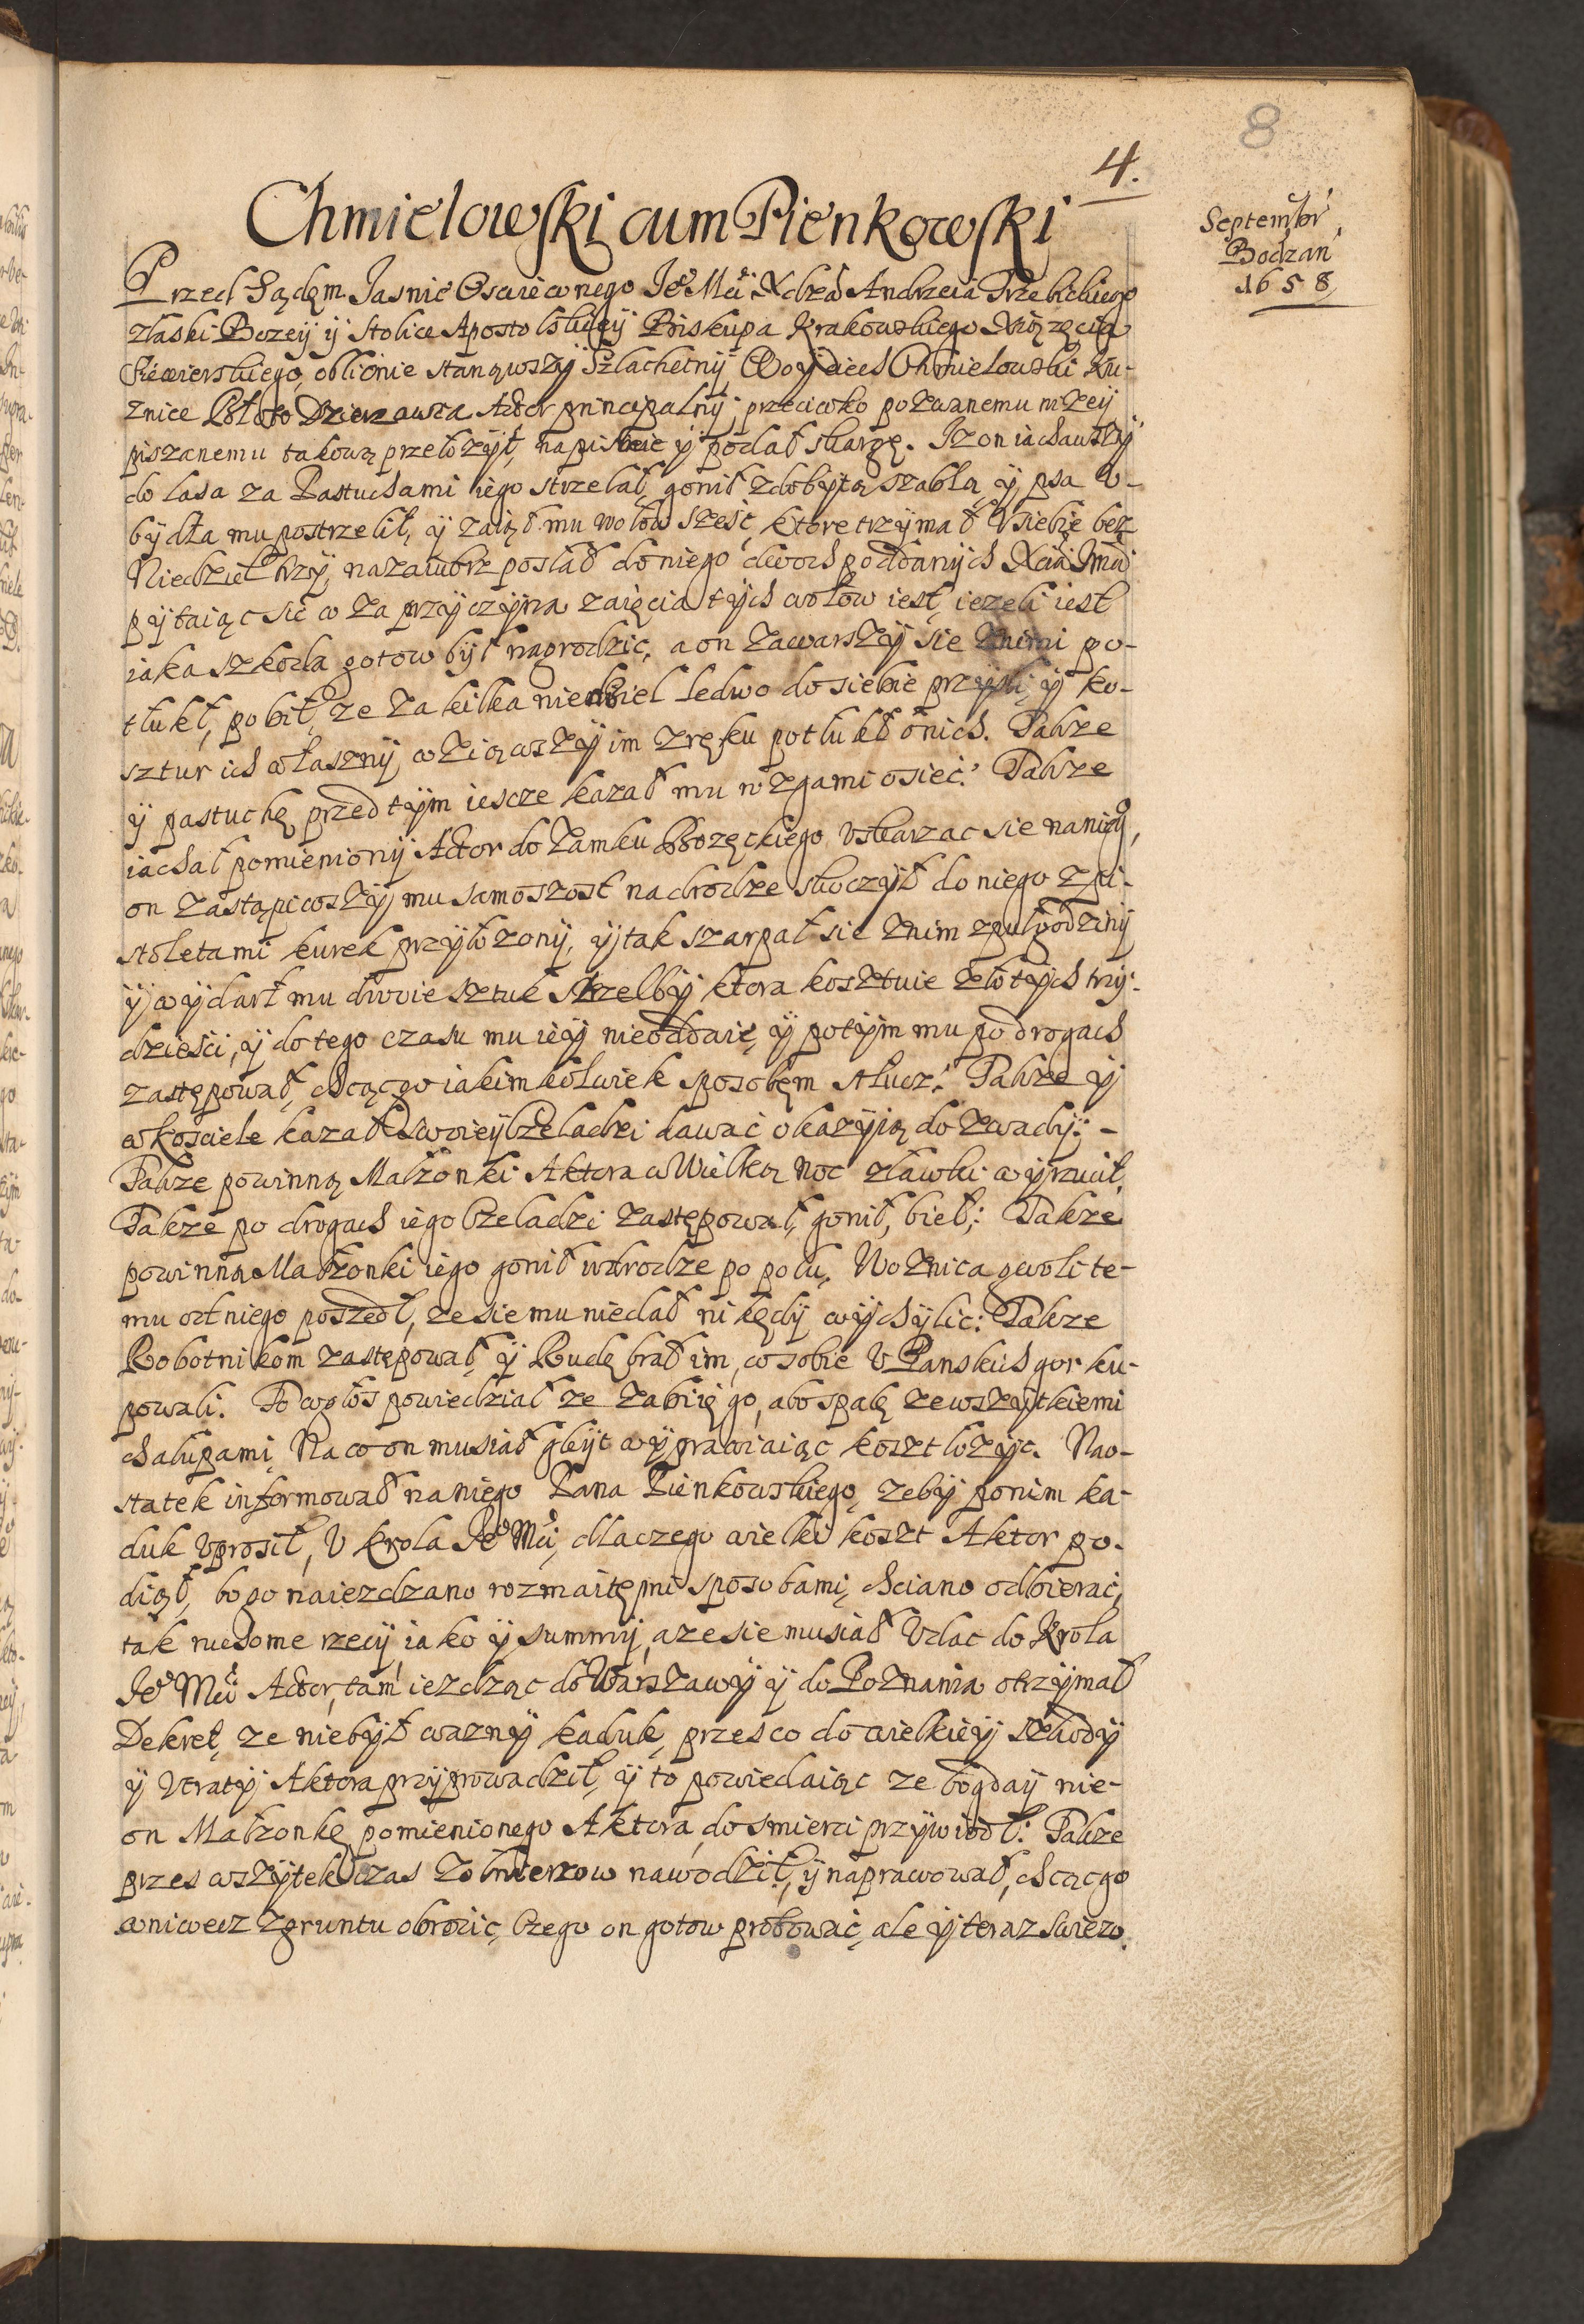 8
4.
Chmielowski cum Pienkowski
Septembr
Bodzan
1658
Przed Sądęm Jasnie Oswieconego Je° Mći Xdza Andrzeia Trzebickiego
zlaski Bozeÿ ÿ Stolice Apostolskieÿ Biskupa Krakowskiego Xiązęcia
Siewierskiego, oblicnie stanąwszÿ Szlachetnÿ Woÿciech Chmielowski Ku-
znice Dzierzawca Actor principalnÿ; przeciwko pozwanemu nizeÿ
piszanemu takową przełozÿł, napismie ÿ podał skargę. Jz on iachawszÿ
do lasa za Pastuchami iego strzelał, gonił zdobÿtą szablą, ÿ psa v-
bÿdła mu postrzelił, ÿ zaiął mu wołow szesć, ktore trzÿmał v siebie bez
Niedziel trzÿ, nazaiutrz posłał do niego dwoch poddanÿch Xcia Jmći
pÿtaiąc sie co za przÿczÿna zaięcia tÿch wołow iest, iezeli iest
iaka szkoda gotow bÿł nagrodzic, a on zawarszÿ sie znimi po-
tłukł, pobił, ze za kilka niedziel ledwo do siebie przÿsli, ÿ ko-
sztur ich własznÿ wziąwszÿ im zręku potłukł onich. Takze
ÿ pastuchę przed tÿm iescze kazał mu rozgami osieć. Takze
iachał pomienionÿ Actor do Zamku Bozęckiego vskarzac sie naniego,
on zastąpiwszÿ mu samoszost nadrodze skoczÿł do niego zpi-
stoletami kurek przÿłozonÿ, ÿ tak szarpał sie znim zpułgodzinÿ
ÿ wÿdarł mu dwoie sztuk strzelbÿ ktora kosztuie złotÿch trzÿ-
dziesci, ÿ do tego czasu mu ieÿ nieoddaie, ÿ potÿm mu po drogach
zastępował, chcąc go iakimkolwiek sposobęm stłucz. Takze ÿ
wkosciele kazał swoieÿ Czeladzi dawać okazÿią do zwadÿ: -
Takze powinną Małzonki Aktora w Wielką Noc zławki wÿrzucił,
Takze po drogach iego Czeladzi zastępował, gonił, bieł; Takze
powinną Małzonki iego gonił wdrodze po polu, Woznica gwoli te-
mu od niego poszedł, ze sie mu niedał nikędÿ wÿchÿlic: Takze
Robotnikom zastępował, ÿ Rudę brał im, co sobie v Panskich gor ku-
powali. To wgłos powiedział ze zabiię go, abo spalę zewszÿtkiemi
chalupami, Na co on musiał gleÿt wÿprawiaiąc koszt łozÿc. Nao-
statek informował naniego Pana Pienkowskiego, zebÿ ponim ka-
duk vprosił, v Krola Je° Mći, dlaczego wielki koszt Aktor po-
diął, bo go naiezdzano rozmaitęmi sposobami, chciano odbierać,
tak ruchome rzecÿ, iako ÿ summÿ, aze sie musiał vdac do Krola
Je° Mći Actor, tam iezdząc do Warszawÿ ÿ do Poznania otrzÿmał
Dekret, ze niebÿł waznÿ kaduk, przesco do wielkieÿ szkodÿ
ÿ vtratÿ Aktora przÿprowadził, ÿ to powiedaiąc ze bogdaÿ nie-
on Małzonkę pomienionego Aktora do smierci przÿwiodł: Takze
przes wszÿtek czas zołnierzow nawodził, ÿ naprawował, chcąc go
wniwecz zgruntu obrocic, Czego on gotow probować, ale ÿ teraz swiezo.